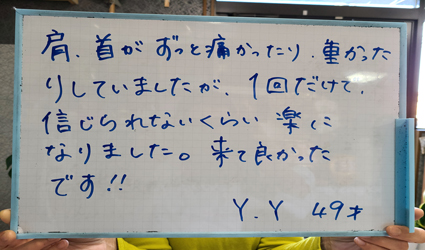 肩、首がずっと痛かったり、重かった
りしていましたが、1回だけで、
信じられないくらい楽に
なりました。来て良かった
です!!
Y.Y 49才